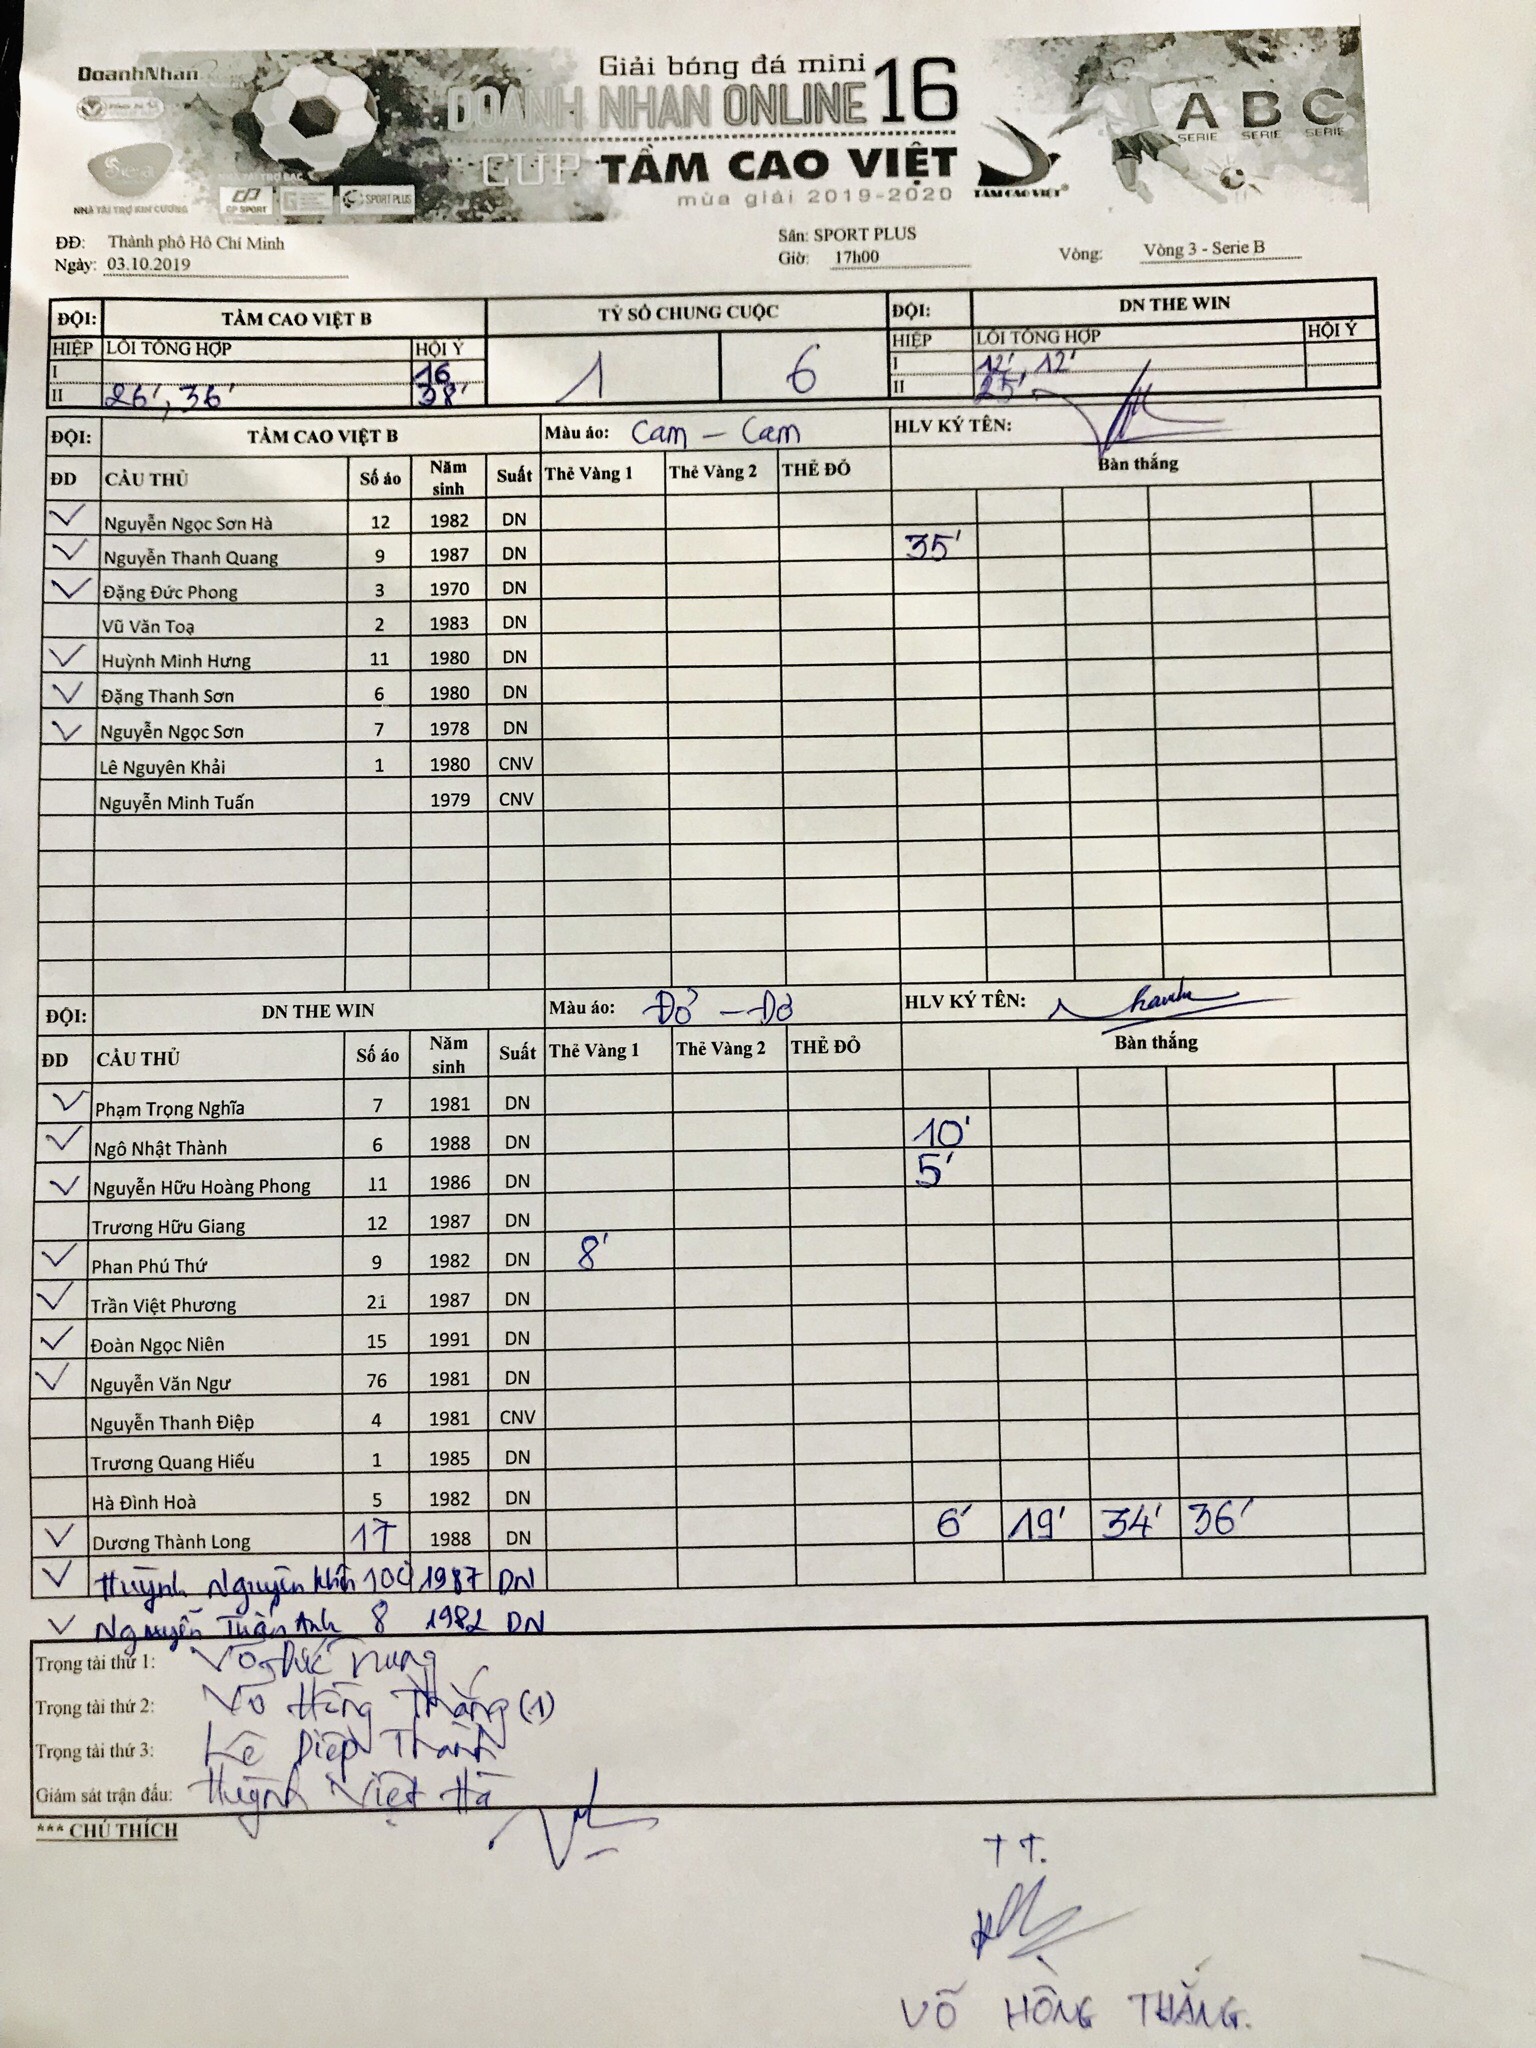 DoanhNhan
Giải bóng đá mini
DOANH NHAN ONLINE 16
CÚP TẦM CAO VIỆT
mùa giải 2019-2020
TẦM CAO VIỆT®
A B C
SERIE SERIE SERIE
NHÀ TÀI TRỢ KIM CƯƠNG
NHÀ TÀI TRỢ BẠC
CP SPORT
SPORT PLUS
ĐĐ: Thành phố Hồ Chí Minh Sân: SPORT PLUS
Ngày: 03.10.2019 Giờ: 17h00 Vòng: Vòng 3 - Serie B
ĐỘI: TẦM CAO VIỆT B TỶ SỐ CHUNG CUỘC ĐỘI: DN THE WIN
HIỆP LỖI TỔNG HỢP HỘI Ý 1 6 HIỆP LỖI TỔNG HỢP HỘI Ý
I 16 I 12', 12'
II 26', 36' 38' II 25'
ĐỘI: TẦM CAO VIỆT B Màu áo: Cam - Cam HLV KÝ TÊN:
ĐD CẦU THỦ Số áo Năm sinh Suất Thẻ Vàng 1 Thẻ Vàng 2 THẺ ĐỎ Bàn thắng
Nguyễn Ngọc Sơn Hà 12 1982 DN
Nguyễn Thanh Quang 9 1987 DN 35'
Đặng Đức Phong 3 1970 DN
Vũ Văn Toạ 2 1983 DN
Huỳnh Minh Hưng 11 1980 DN
Đặng Thanh Sơn 6 1980 DN
Nguyễn Ngọc Sơn 7 1978 DN
Lê Nguyên Khải 1 1980 CNV
Nguyễn Minh Tuấn 1979 CNV
ĐỘI: DN THE WIN Màu áo: Đỏ - Đỏ HLV KÝ TÊN:
ĐD CẦU THỦ Số áo Năm sinh Suất Thẻ Vàng 1 Thẻ Vàng 2 THẺ ĐỎ Bàn thắng
Phạm Trọng Nghĩa 7 1981 DN
Ngô Nhật Thành 6 1988 DN 10'
Nguyễn Hữu Hoàng Phong 11 1986 DN 5'
Trương Hữu Giang 12 1987 DN
Phan Phú Thứ 9 1982 DN 8'
Trần Việt Phương 21 1987 DN
Đoàn Ngọc Niên 15 1991 DN
Nguyễn Văn Ngư 76 1981 DN
Nguyễn Thanh Điệp 4 1981 CNV
Trương Quang Hiếu 1 1985 DN
Hà Đình Hoà 5 1982 DN
Dương Thành Long 17 1988 DN 6' 19' 34' 36'
Huỳnh Nguyên 100 1987 DN
Nguyễn Tuấn Anh 8 1982 DN
Trọng tài thứ 1: Võ Đức
Trọng tài thứ 2: Võ Hồng Thắng (1)
Trọng tài thứ 3: Lê Diệp Thành
Giám sát trận đấu: Huỳnh Việt Hà
*** CHÚ THÍCH
TT.
VÕ HỒNG THẮNG.